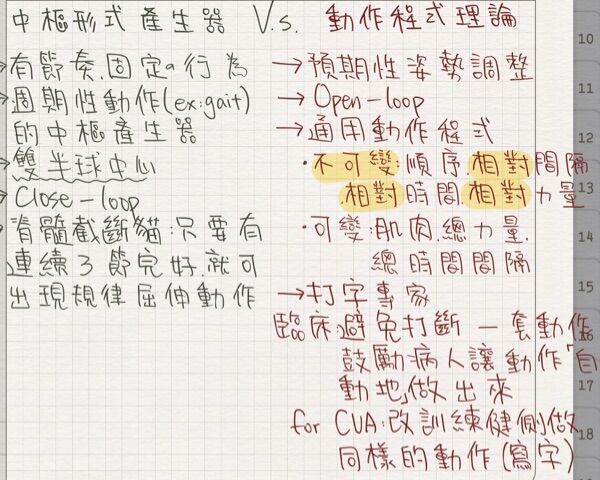 中樞形式產生器 V.s. 動作程式理論
→有節奏.固定の行為
→週期性動作(ex:gait)
的中樞產生器
→雙半球中心
→Close-loop
脊髓截斷貓:只要有
連續3節完好.就可
出現規律屈伸動作
→預期性姿勢調整
→Open-loop
→通用動作程式
·不可變:順序.相對間隔
相對時間.相對力量
·可變:肌肉.總力量.
總時間間隔
→打字專家
臨床:避免打斷一套動作
鼓勵病人讓動作「自
動地」做出來
for CVA:改訓練健側做
同樣的動作(寫字)
10
11
12
13
14
15
16
17
18